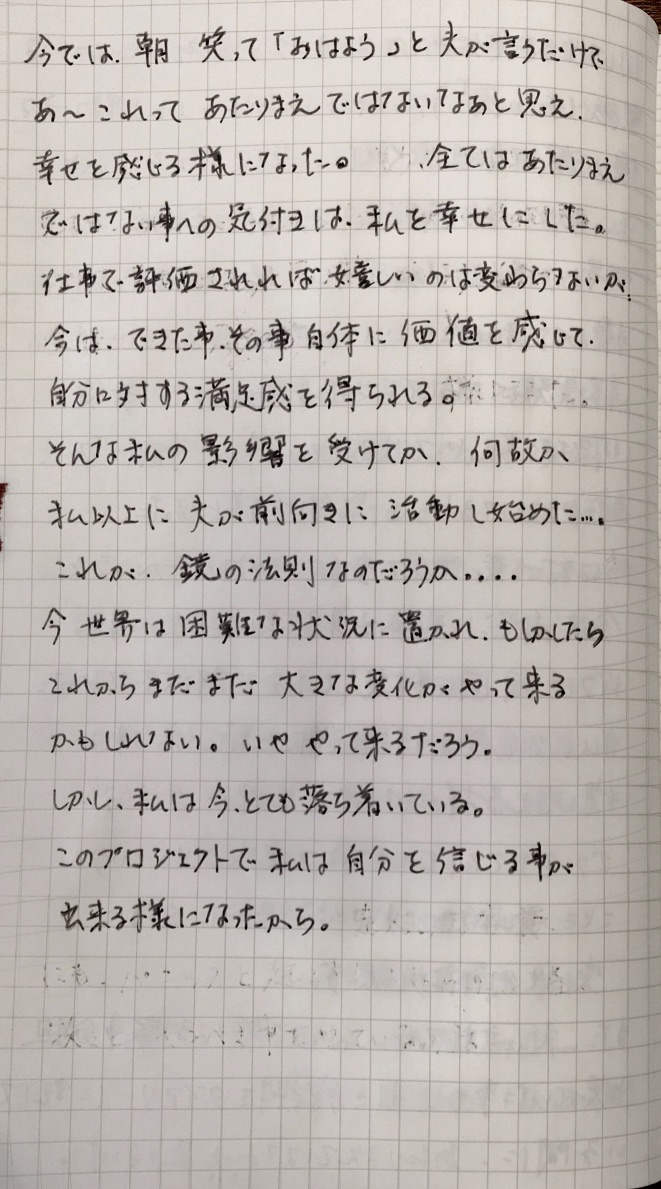 今では、朝 笑って「おはよう」と夫が言うだけで
あ～これって あたりまえではないなあと思え、
幸せを感じる様になった。 全てはあたりまえ
ではない事への気付きは、私を幸せにした。
仕事で評価されれば嬉しいのは変わらないが、
今は、できた事、その事自体に価値を感じて、
自分に対する満足感を得られる。
そんな私の影響を受けてか、何故か、
私以上に夫が前向きに活動し始めた…。
これが、鏡の法則なのだろうか....
今世界は困難な状況に置かれ、もしかしたら
これからまだまだ 大きな変化が やって来る
かもしれない。いや やって来るだろう。
しかし、私は今、とても落ち着いている。
このプロジェクトで私は自分を信じる事が
出来る様になったから。